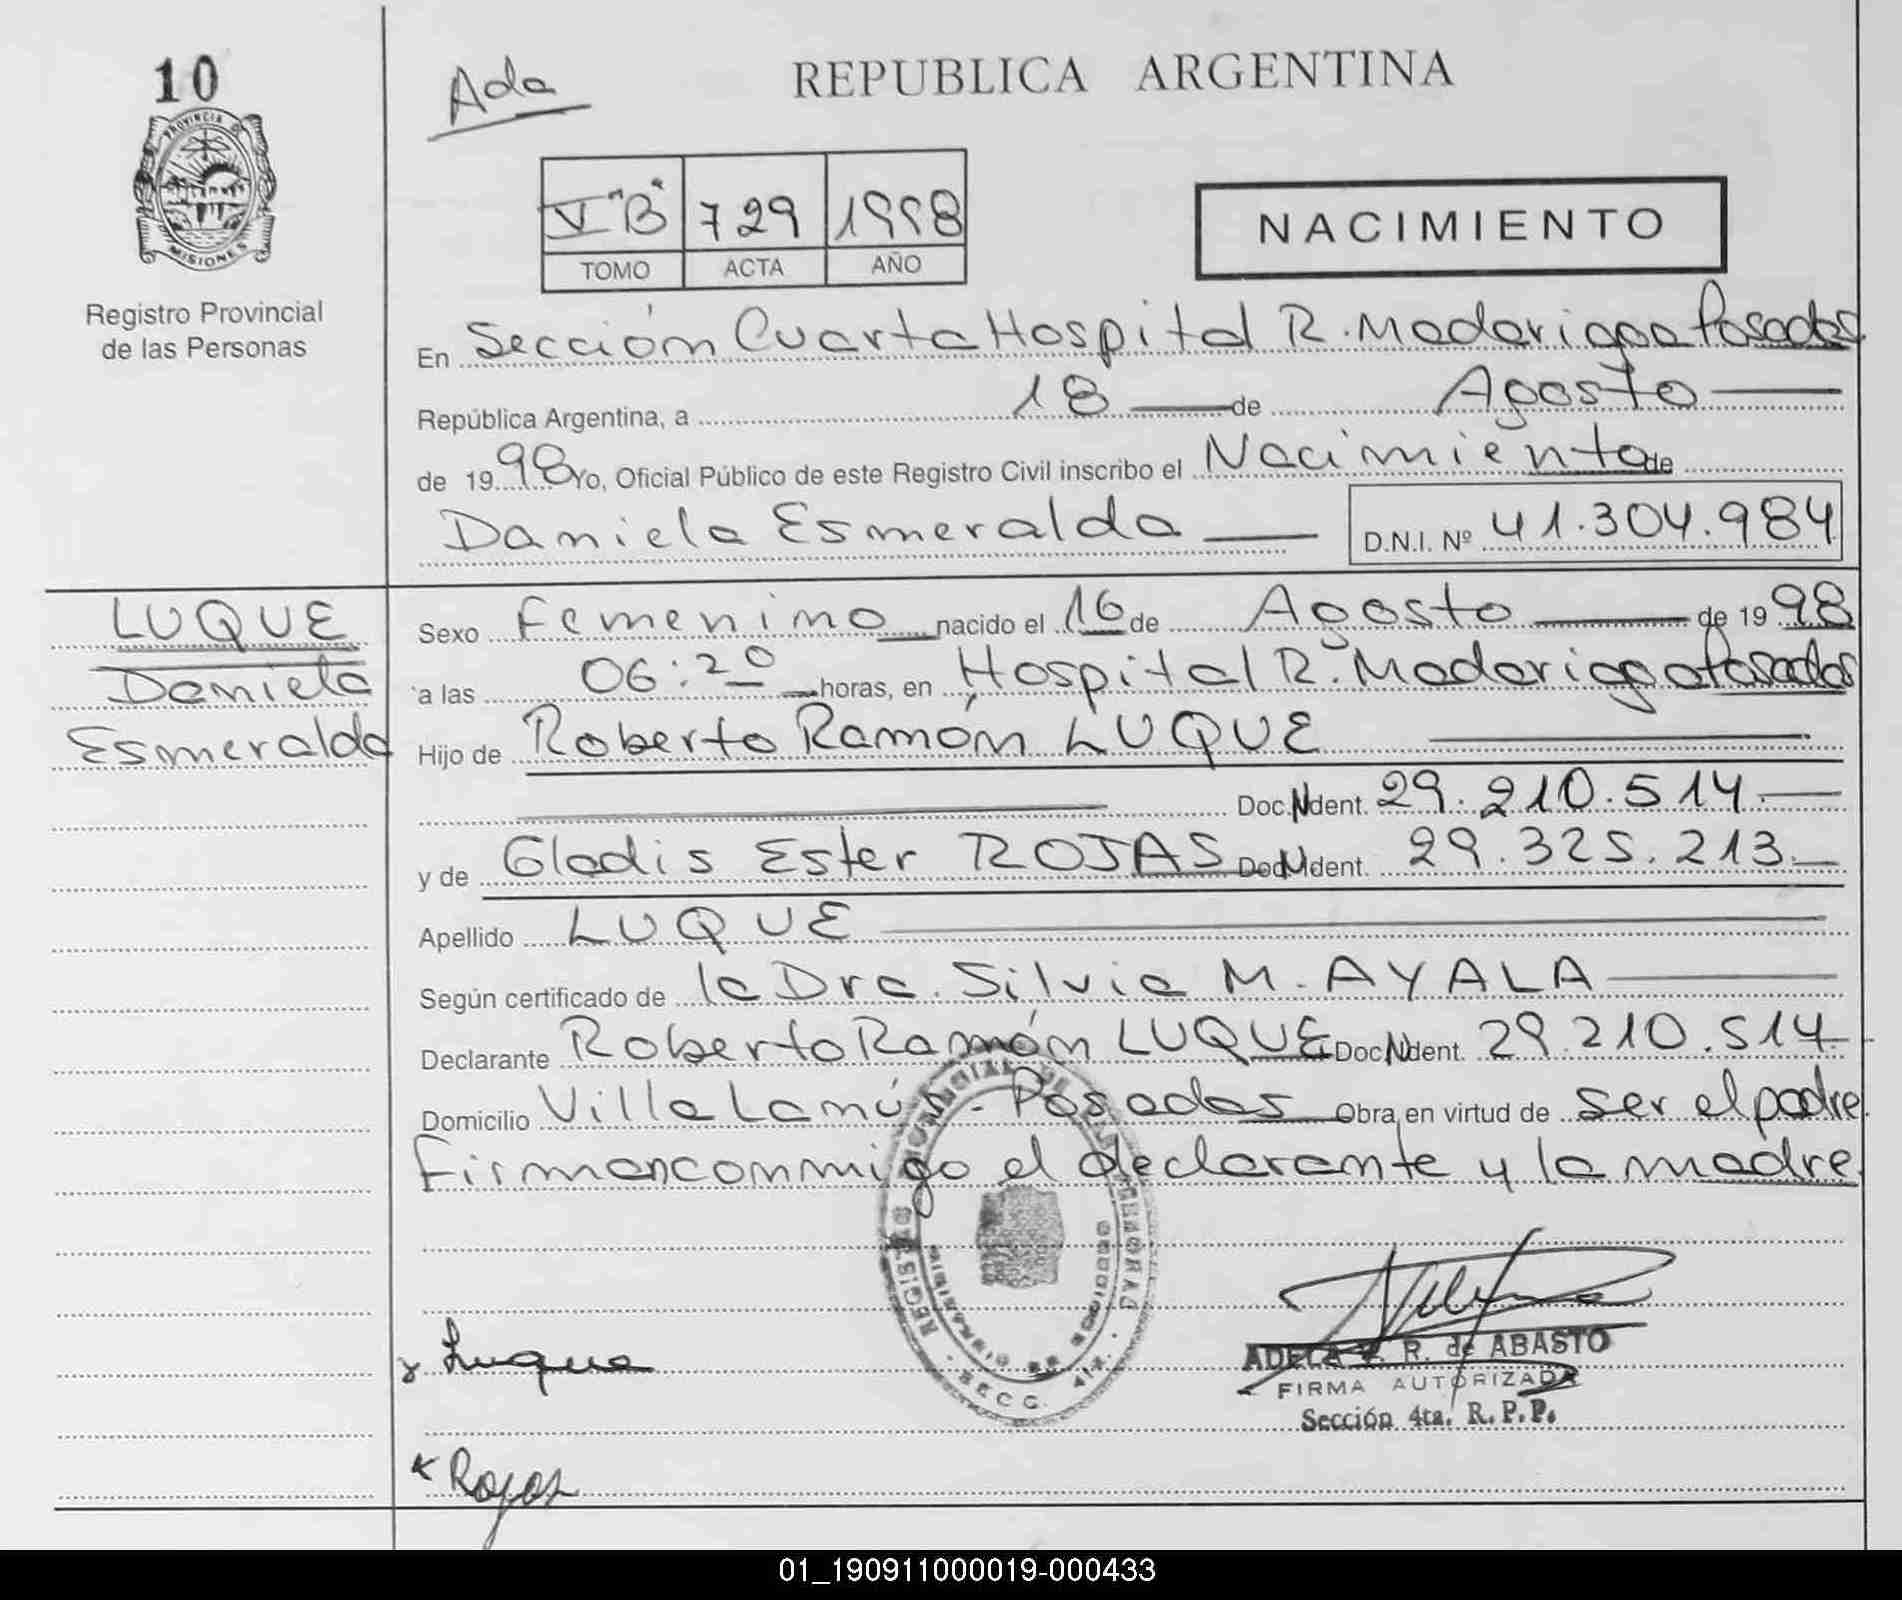 10
Ada
REPUBLICA ARGENTINA
PROVINCIA DE
MISIONES
V "B" 729 1998
TOMO ACTA AÑO
NACIMIENTO
Registro Provincial
de las Personas
En Sección Cuarta Hospital R. Madariaga Posadas
República Argentina, a 18 de Agosto
de 1998 Yo, Oficial Público de este Registro Civil inscribo el Nacimiento de
Daniela Esmeralda D.N.I. Nº 41.304.984
LUQUE
Daniela
Esmeralda
Sexo Femenino nacido el 16 de Agosto de 1998
a las 06:20 horas, en Hospital R. Madariaga Posadas
Hijo de Roberto Ramón LUQUE
Doc. N Ident. 29.210.514
y de Gladis Ester ROJAS Doc. N Ident. 29.325.213
Apellido LUQUE
Según certificado de la Dra. Silvia M. AYALA
Declarante Roberto Ramón LUQUE Doc. N Ident. 29.210.514
Domicilio Villa Lanús - Posadas Obra en virtud de ser el padre
Firman conmigo el declarante y la madre
Luque
ADELA R. de ABASTO
FIRMA AUTORIZADA
Sección 4ta. R.P.P.
SECC. 4ta.
Rojas
01_190911000019-000433